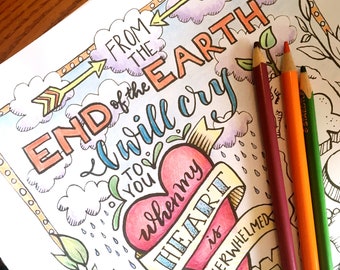 FROM
THE
END of the EARTH
I will cry
TO YOU
when my
HEART
is
OVERWHELMED